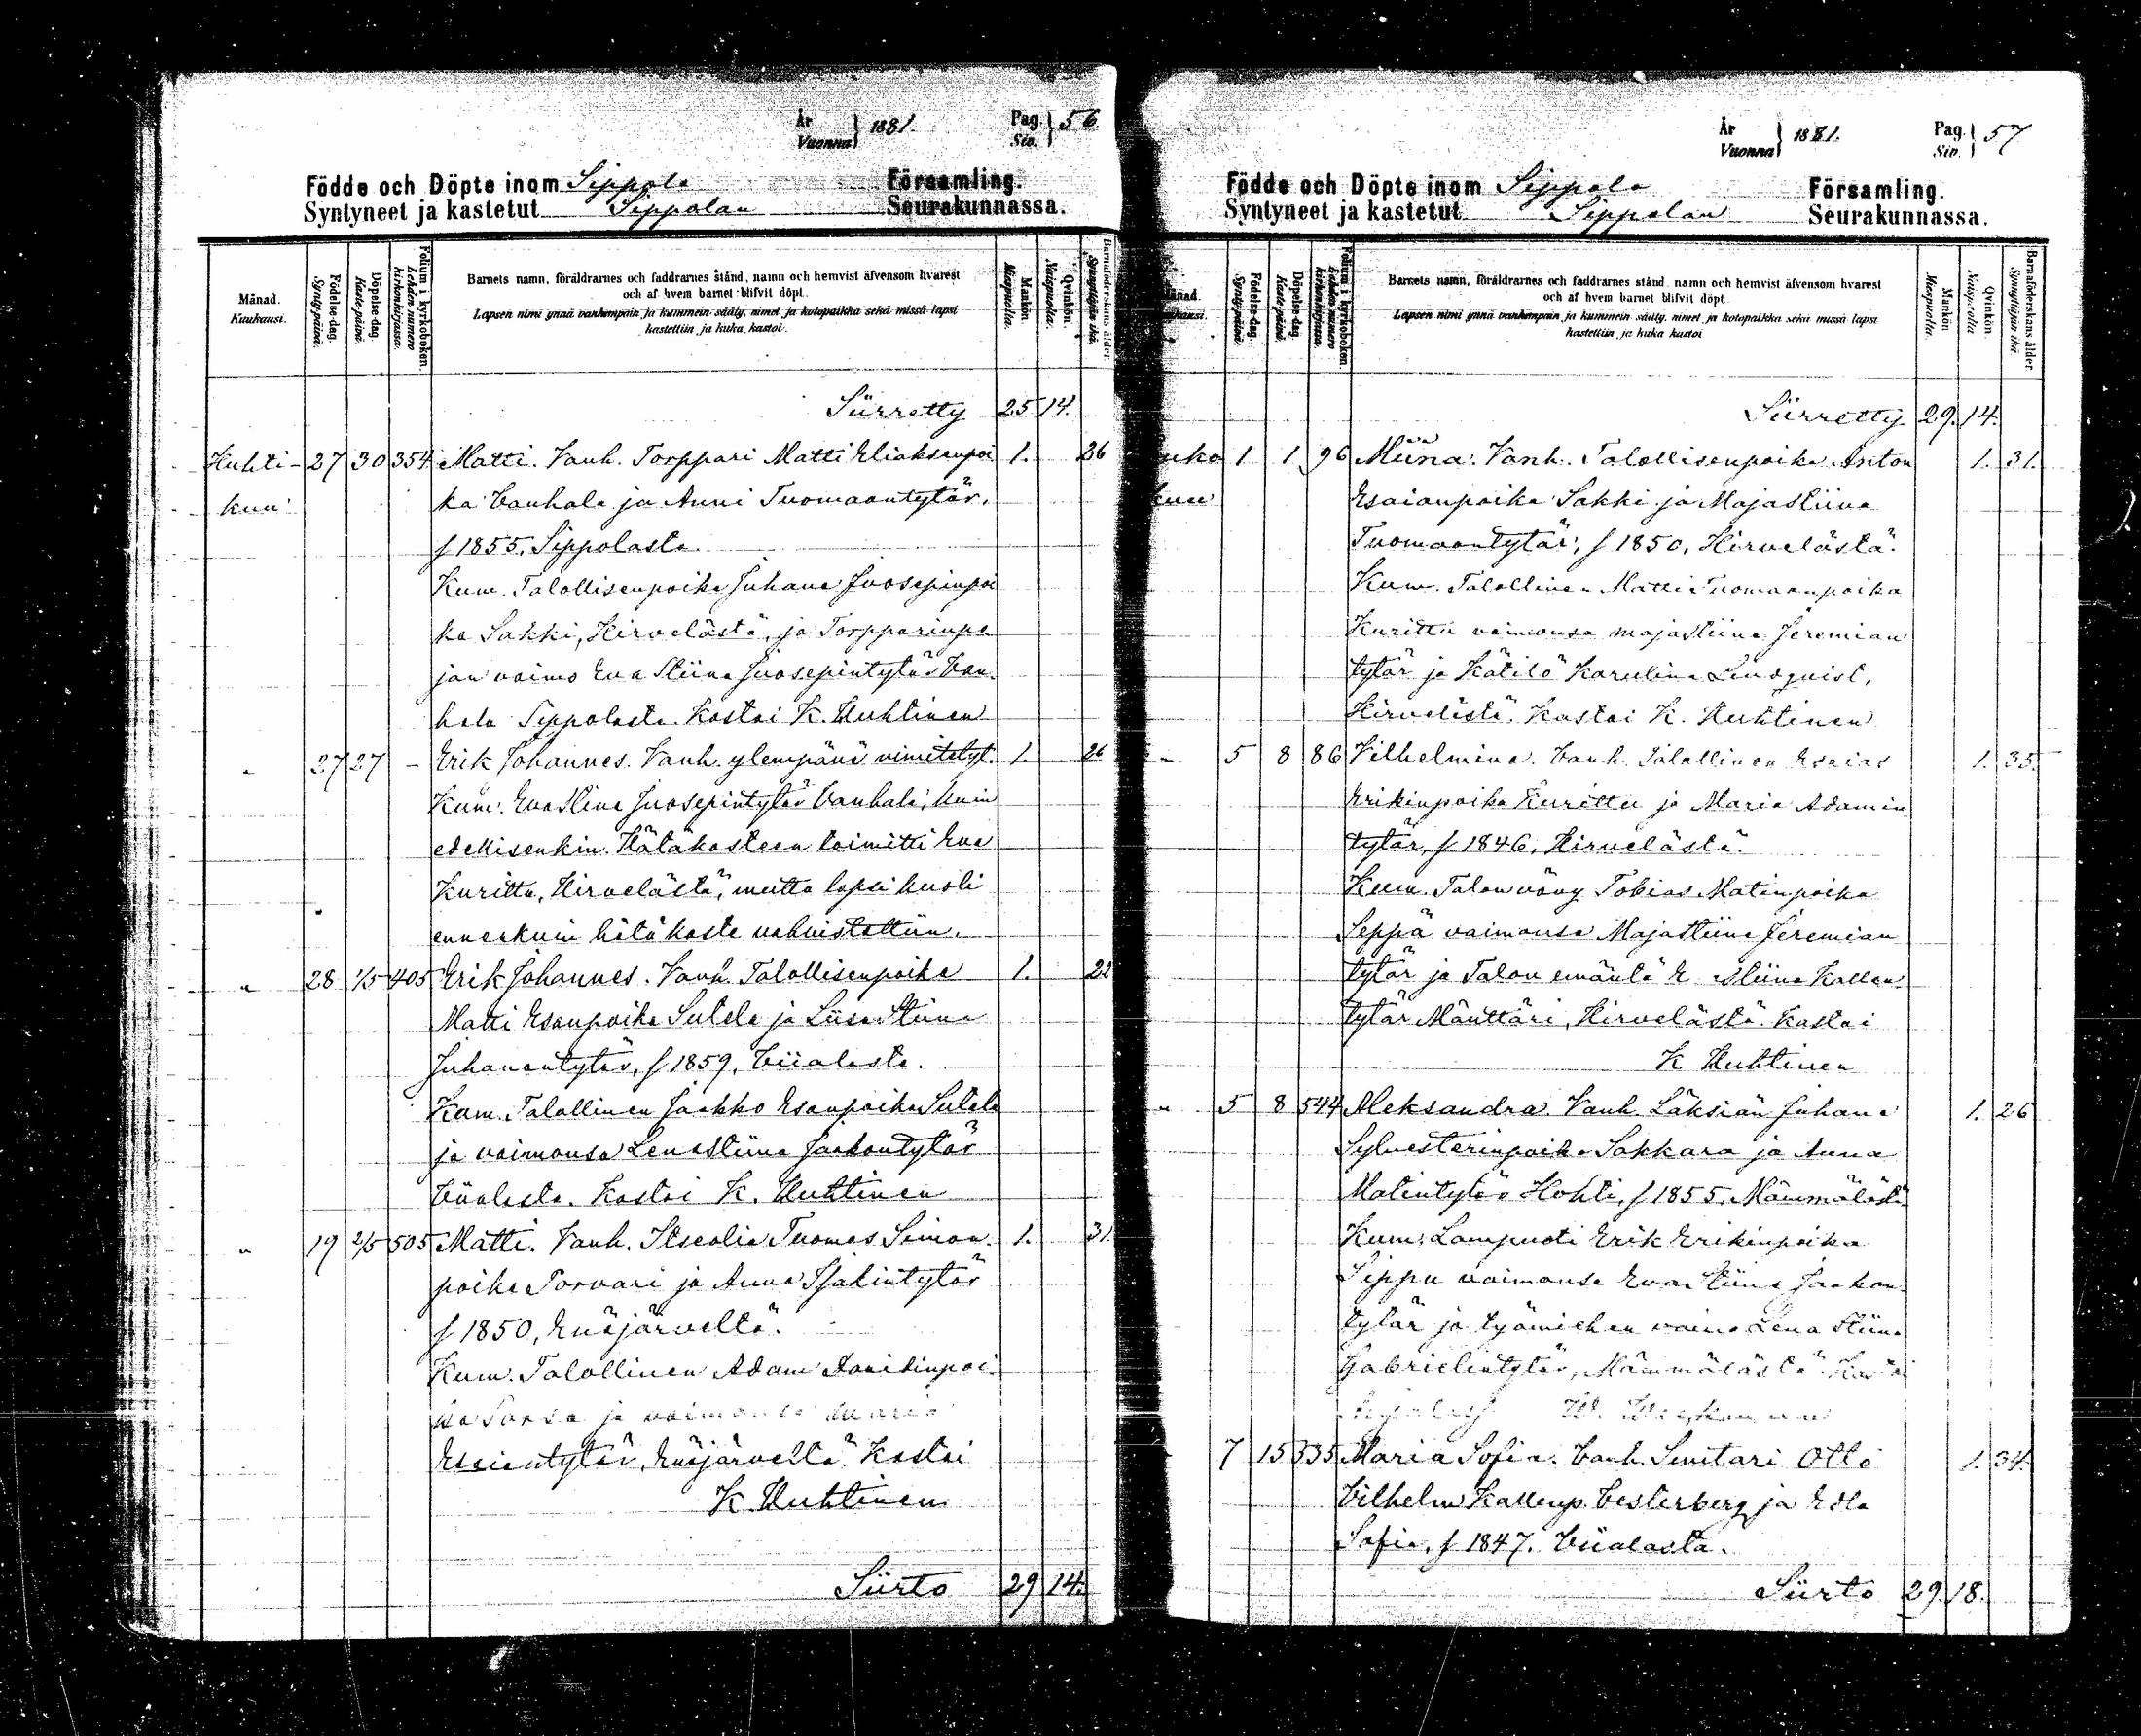 År
Vuonna } 1881.
Pag.
Siv. } 56.
Födde och Döpte inom Sippola Församling.
Syntyneet ja kastetut Sippolan Seurakunnassa.
Månad.
Kuukausi.
Födelse-dag.
Syntypäivä.
Döpelse-dag.
Kastepäivä.
Folium i kyrkoboken.
Lehden numero
kirkonkirjassa.
Barnets namn, föräldrarnes och faddrarnes stånd, namn och hemvist äfvensom hvarest
och af hvem barnet blifvit döpt.
Lapsen nimi ynnä vanhempain ja kummein sääty, nimet ja kotopaikka sekä missä lapsi
kastettiin ja kuka kastoi.
Mankön.
Miespuolta.
Qvinkön.
Naispuolta.
Barnaföderskans ålder.
Synnyttäjän ikä.
Siirretty 25 14.
Huhti- 27 30 354 Matti. Vanh. Torppari Matti Eliaksenpoi 1. 26
kuu ka Vanhala ja Anni Tuomaantytär,
f 1855. Sippolasta.
Kum. Talollisenpoika Juhana Juosepinpoi
ka Sakki, Hirvelästä, ja Torpparinpo
jan vaimo Eva Stiina Juosepintytär Van
hala Sippolasta. Kastoi K. Huhtinen
" 27 27 - Erik Johannes. Vanh. ylempänä nimitetyt. 1. 26
Kum. Eva Stina Juosepintytär Vanhala, kuin
edellisenkin. Hätäkasteen toimitti Eva
Kuritta, Hirvelästä, mutta lapsi kuoli
ennenkuin hätäkaste vahvistettiin.
" 28 1/5 405 Erik Johannes. Vanh. Talollisenpoika 1. 22
Matti Esanpoika Sutela ja Liisa Stiina
Juhanantytär, f 1859, Viialasta.
Kum. Talollinen Jaakko Esanpoika Sutela
ja vaimonsa Lena Stiina Jaakontytär
Viialasta. Kastoi K. Huhtinen
" 19 2/5 505 Matti. Vanh. Itsellis Tuomas Simon 1. 31.
poika Torvari ja Anna Isakintytär
f 1850, Enäjärveltä.
Kum. Talollinen Adam Davidinpoi
ka ja vaimonsa Maria
Esaiantytär, Enäjärveltä. Kastoi
K. Huhtinen
Siirto 29 14.
År
Vuonna } 1881.
Pag.
Siv. } 57
Födde och Döpte inom Sippola Församling.
Syntyneet ja kastetut Sippolan Seurakunnassa.
Födelse-dag.
Syntypäivä.
Döpelse-dag.
Kastepäivä.
Folium i kyrkoboken.
Lehden numero
kirkonkirjassa.
Barnets namn, föräldrarnes och faddrarnes stånd, namn och hemvist äfvensom hvarest
och af hvem barnet blifvit döpt.
Lapsen nimi ynnä vanhempain ja kummein sääty, nimet ja kotopaikka sekä missä lapsi
kastettiin ja kuka kastoi
Mankön
Miespuolta.
Qvinkön.
Naispuolta
Barnaföderskans ålder.
Synnyttäjän ikä.
Siirretty. 29. 14.
uko 1 1 96 Miina. Vanh. Talollisenpoika Anton 1. 31.
kuu Esaianpoika Sakki ja Majastiina
Tuomaantytär, f 1850, Hirvelästä.
Kum. Talollinen Matti Tuomaanpoika
Kurittu vaimonsa Majastiina Jeremian
tytär ja Kätilö Karulina Lindquist,
Hirvelästä. Kastoi K. Huhtinen
" 5 8 86 Vilhelmina. Vanh. Talollinen Esaias 1. 35.
Erikinpoika Kurittu ja Maria Adamin
tytär, f 1846, Hirvelästä.
Kum. Talonvävy Tobias Matinpoika
Seppä vaimonsa Majastiina Jeremian
tytär ja Talon emäntä E stiina Kallen
tytär Mänttäri, Hirvelästä. Kastoi
K Huhtinen
" 5 8 544 Aleksandra. Vanh. Läksiän Juhana 1. 26
Sylvesterinpoika Sakkara ja Anna
Matintytär Hohti, f 1855, Mämmälästä
Kum. Lampuoti Erik Erikinpoika
Sippu vaimonsa Eva Stiina Jaakon
tytär ja työmiehen vaimo Lena Stiina
Gabrielintytär, Mämmälästä. Kastoi
7 15 335 Maria Sofia. Vanh. Sunitari Otto 1. 34.
Vilhelm Kallenp. Vesterberg ja Edla
Sofia, f 1847. Viialasta.
Siirto 29. 18.